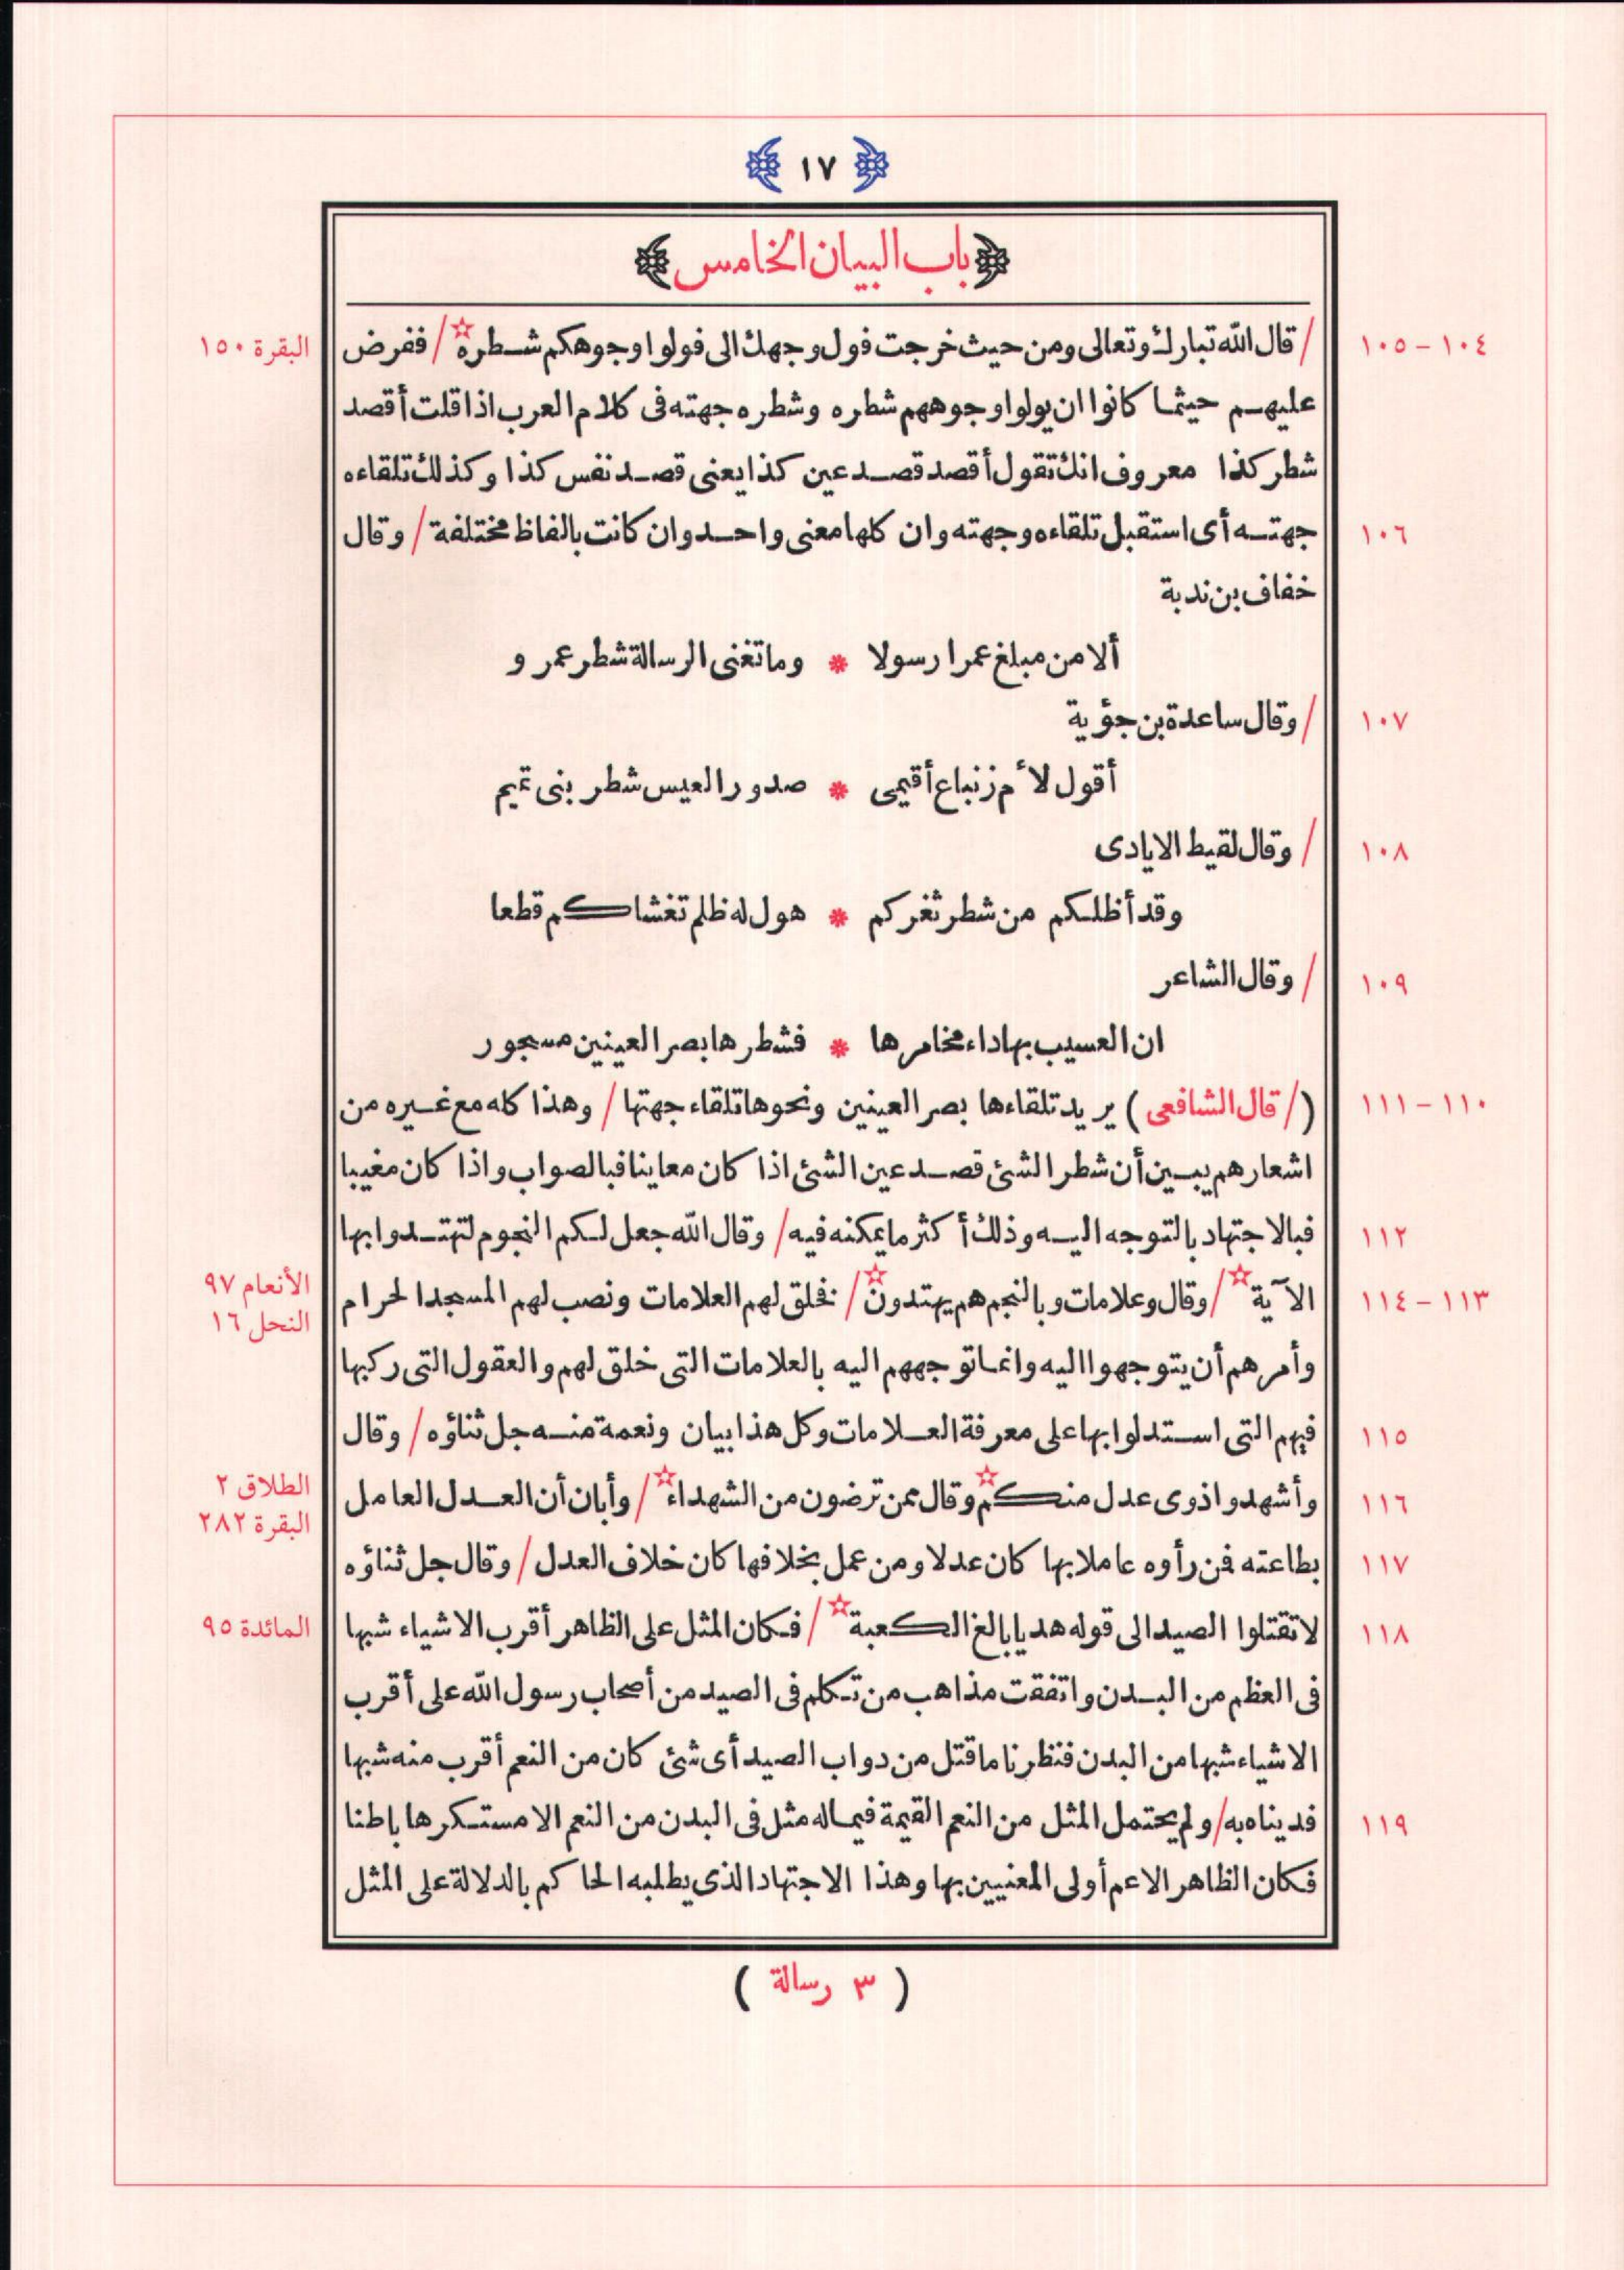 ١٧
باب البيان الخامس
١٠٤ - ١٠٥ / قال الله تبارك وتعالى ومن حيث خرجت فول وجهك الى فولوا وجوهكم شطره ☆ / ففرض البقرة ١٥٠
عليهم حيثما كانوا ان يولوا وجوههم شطره وشطره جهته فى كلام العرب اذا قلت أقصد
شطر كذا معروف انك تقول أقصد قصد عين كذا يعنى قصد نفس كذا وكذلك تلقاءه
١٠٦ جهته أى استقبل تلقاءه وجهته وان كلها معنى واحد وان كانت بالفاظ مختلفة / وقال
خفاف بن ندبة
ألا من مبلغ عمرا رسولا * وما تغنى الرسالة شطر عمرو
١٠٧ / وقال ساعدة بن جؤية
أقول لأم زنباع أقيمى * صدور العيس شطر بنى تميم
١٠٨ / وقال لقيط الايادى
وقد أظلكم من شطر ثغركم * هول له ظلم تغشاكم قطعا
١٠٩ / وقال الشاعر
ان العسيب بها داء مخامرها * فشطرها بصر العينين مسجور
١١٠ - ١١١ (/ قال الشافعى) يريد تلقاءها بصر العينين ونحوها تلقاء جهتها / وهذا كله مع غيره من
اشعارهم يبين أن شطر الشئ قصد عين الشئ اذا كان معاينا فبالصواب واذا كان مغيبا
١١٢ فبالاجتهاد بالتوجه اليه وذلك أكثر ما يمكنه فيه / وقال الله جعل لكم النجوم لتهتدوا بها
١١٣ - ١١٤ الآية ☆ / وقال وعلامات وبالنجم هم يهتدون ☆ / فخلق لهم العلامات ونصب لهم المسجد الحرام الأنعام ٩٧
النحل ١٦
وأمرهم أن يتوجهوا اليه وانما توجههم اليه بالعلامات التى خلق لهم والعقول التى ركبها
١١٥ فيهم التى استدلوا بها على معرفة العلامات وكل هذا بيان ونعمة منه جل ثناؤه / وقال
١١٦ وأشهدوا ذوى عدل منكم ☆ وقال ممن ترضون من الشهداء ☆ / وأبان أن العدل العامل الطلاق ٢
البقرة ٢٨٢
١١٧ بطاعته فمن رأوه عاملا بها كان عدلا ومن عمل بخلافها كان خلاف العدل / وقال جل ثناؤه
١١٨ لا تقتلوا الصيد الى قوله هديا بالغ الكعبة ☆ / فكان المثل على الظاهر أقرب الاشياء شبها المائدة ٩٥
فى العظم من البدن واتفقت مذاهب من تكلم فى الصيد من أصحاب رسول الله على أقرب
الاشياء شبها من البدن فنظرنا ما قتل من دواب الصيد أى شئ كان من النعم أقرب منه شبها
١١٩ فديناه به / ولم يحتمل المثل من النعم القيمة فيما له مثل فى البدن من النعم الا مستكرها باطنا
فكان الظاهر الاعم أولى المعنيين بها وهذا الاجتهاد الذى يطلبه الحاكم بالدلالة على المثل
( ٣ رسالة )